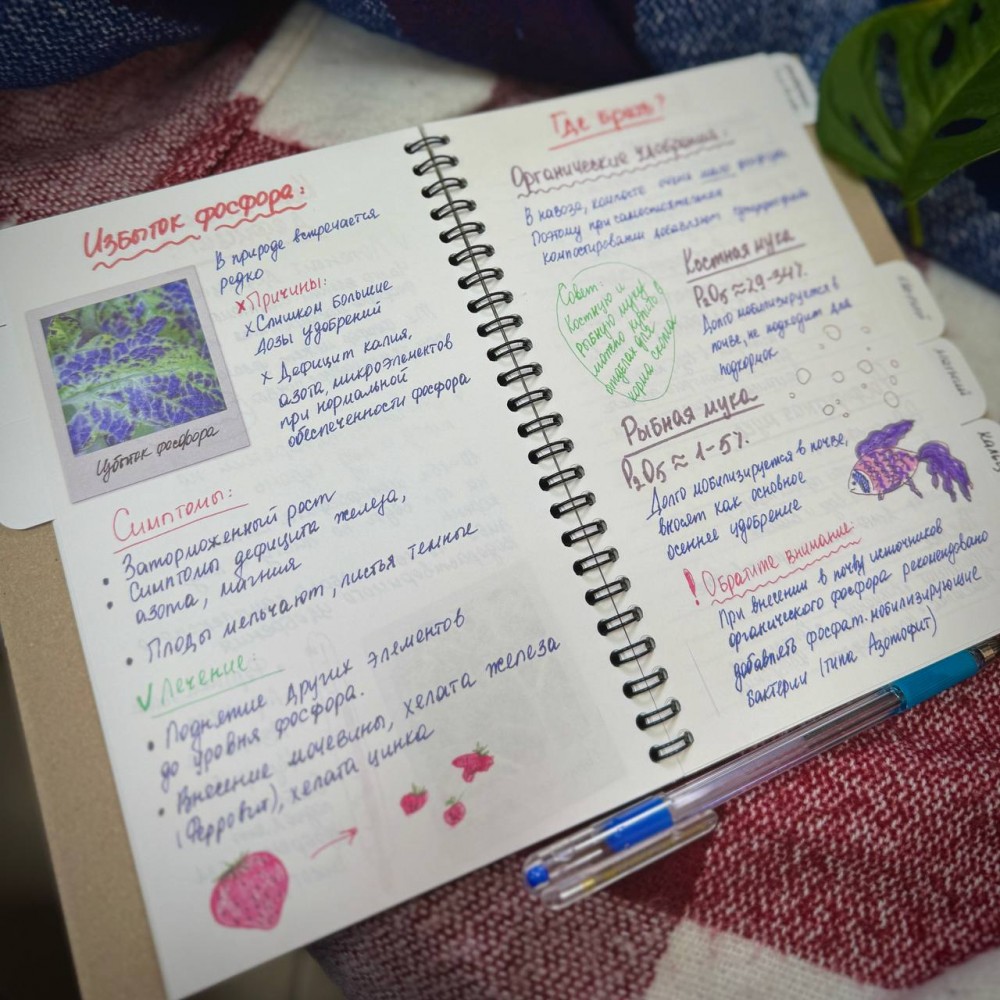 Избыток фосфора:
В природе встречается
редко
х Причины:
х Слишком большие
дозы удобрений
х Дефицит калия,
азота, микроэлементов
при нормальной
обеспеченности фосфора
Избыток фосфора
Симптомы:
• Заторможенный рост
• Симптомы дефицита железа,
азота, магния
• Плоды мельчают, листья темные
√ Лечение:
• Поднятие других элементов
до уровня фосфора.
• Внесение мочевины, хелата железа
(Ферровит), хелата цинка
Где брать?
Органические удобрения:
В навозе, компосте очень мало фосфора
Поэтому при самостоятельном
компостировании добавляют
Костная мука
P₂O₅ ≈ 29-34%.
Долго мобилизируется в
почве, не подходит для
подкормок
Совет:
Костную и
рыбную муку
можно купить в
отделах для
корма
Рыбная мука
P₂O₅ ≈ 1-5%.
Долго мобилизируется в почве,
вносят как основное
осеннее удобрение
! Обратите внимание
При внесении в почву источников
органического фосфора рекомендовано
добавлять фосфат.мобилизирующие
бактерии (типа Азотофит)